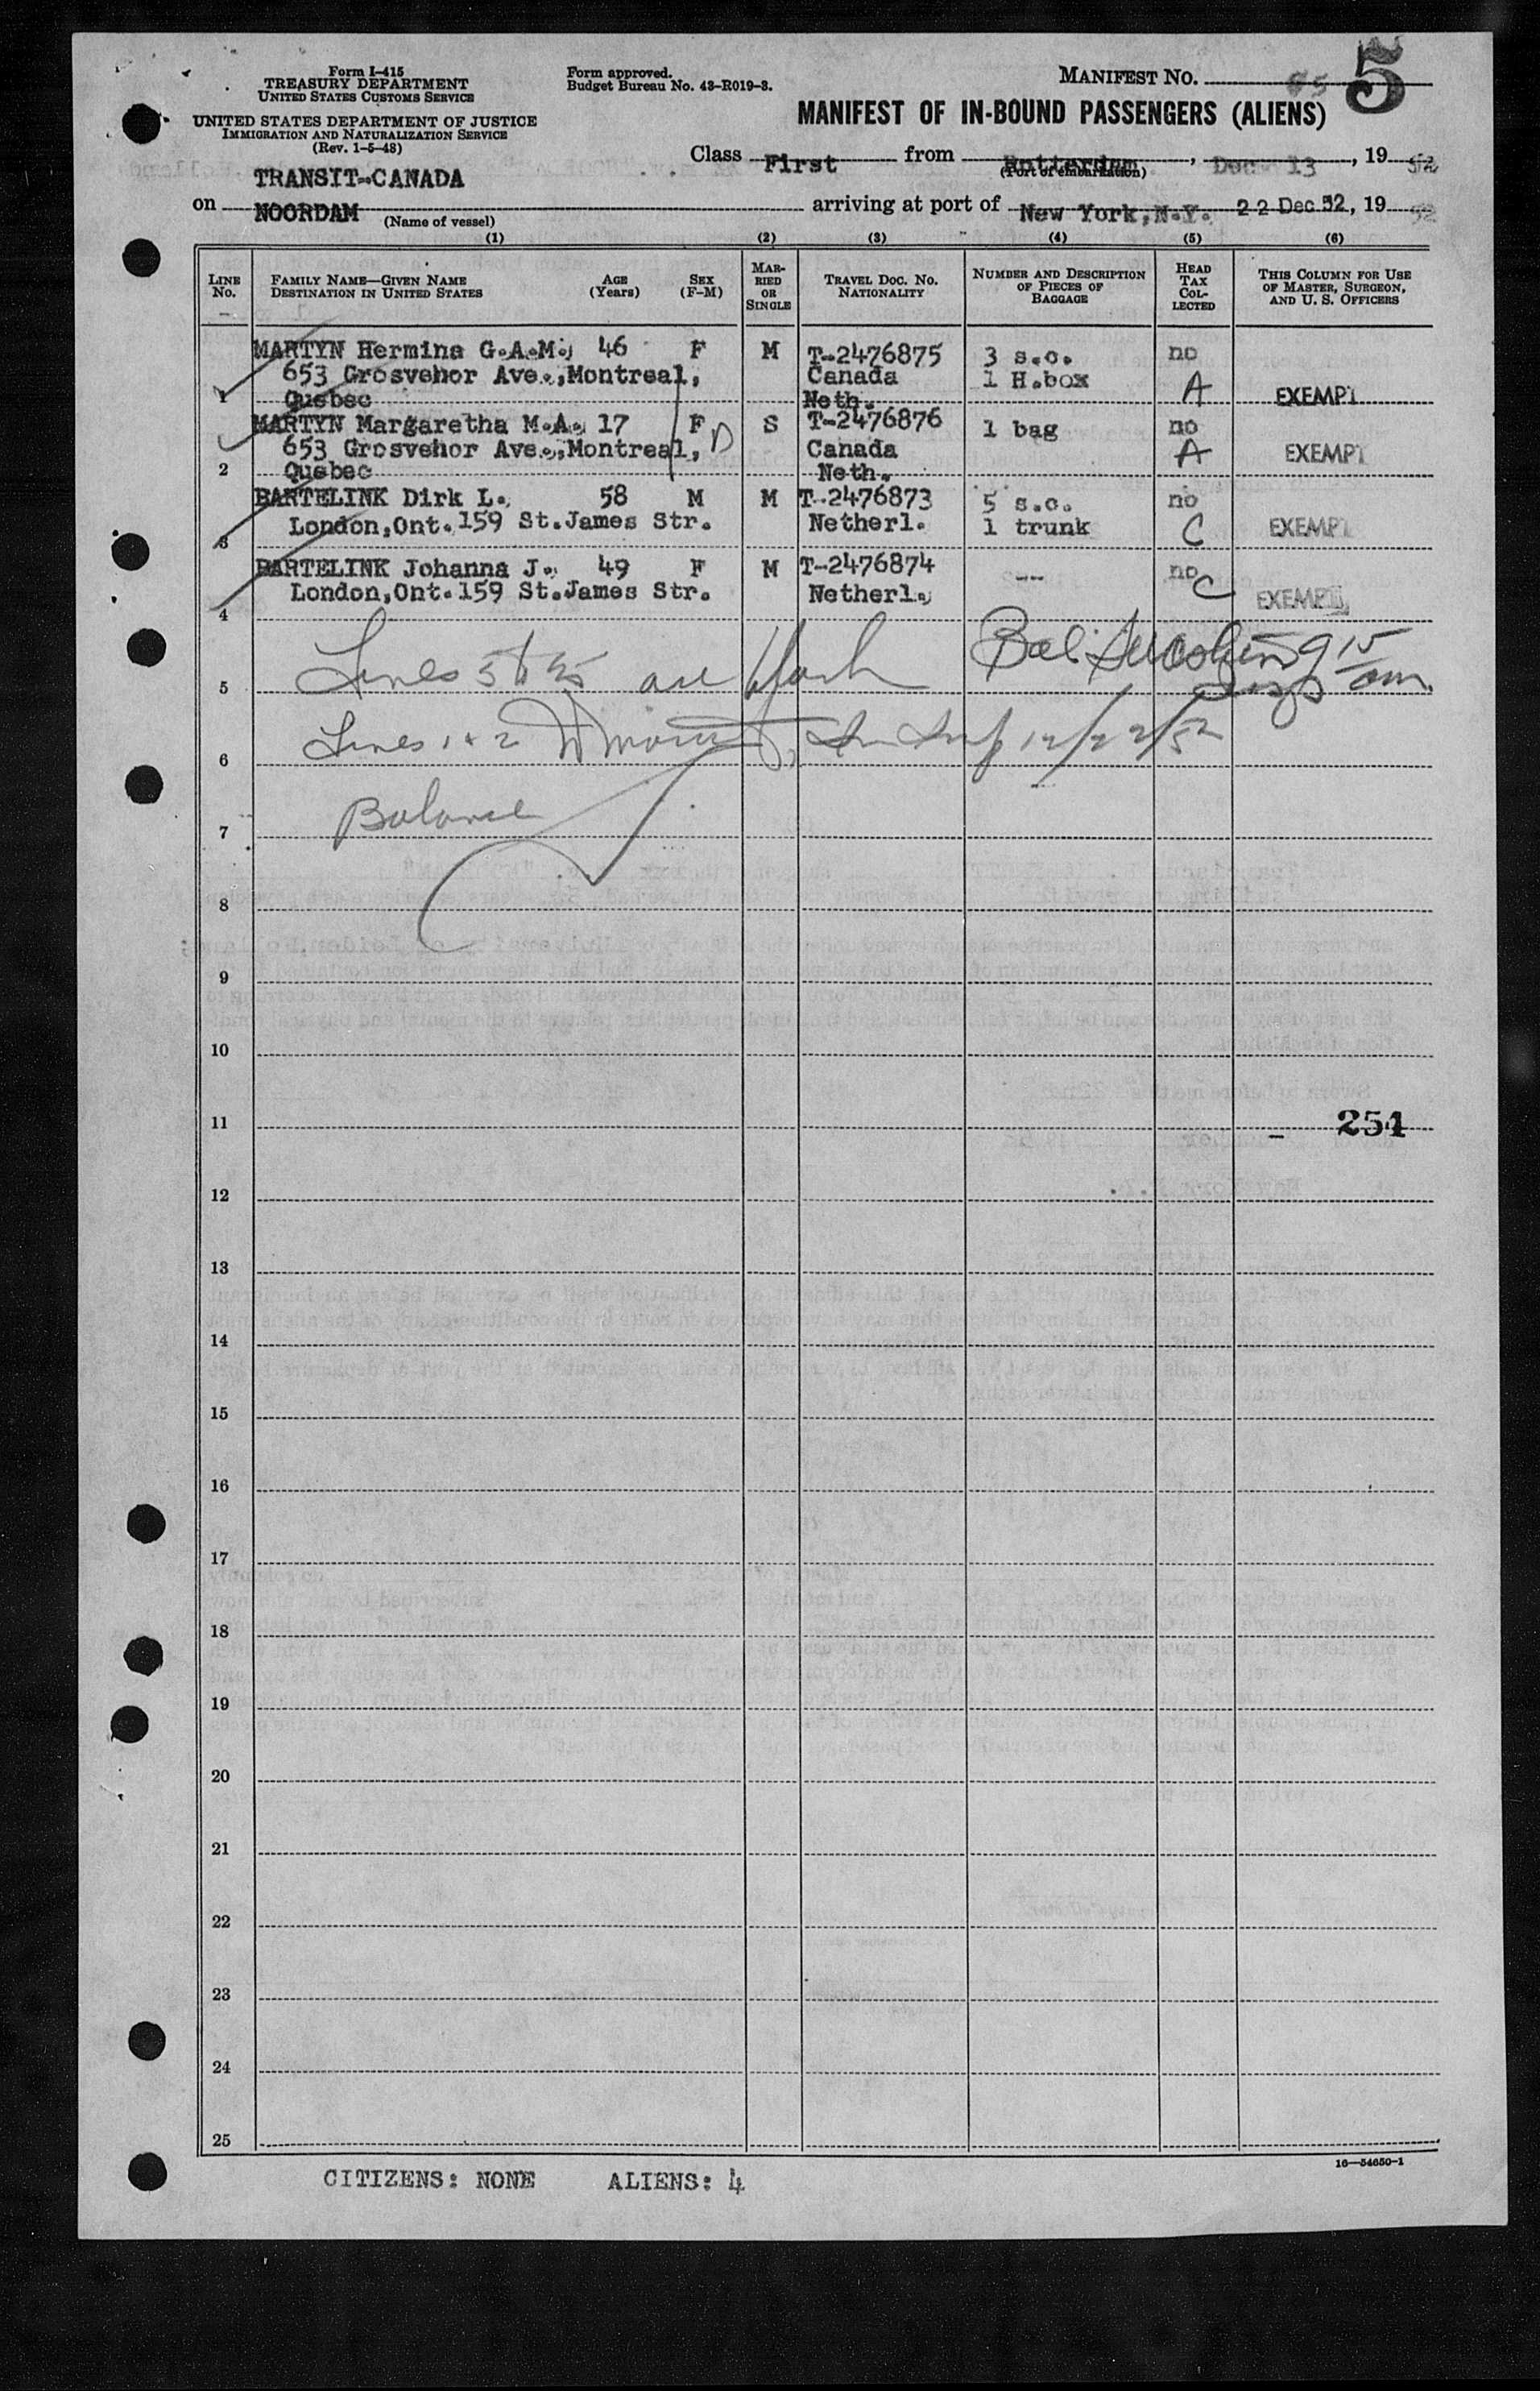 Form I-415
TREASURY DEPARTMENT
UNITED STATES CUSTOMS SERVICE
UNITED STATES DEPARTMENT OF JUSTICE
IMMIGRATION AND NATURALIZATION SERVICE
(Rev. 1-5-48)
Form approved.
Budget Bureau No. 43-R019-3.
MANIFEST NO. 5
MANIFEST OF IN-BOUND PASSENGERS (ALIENS)
Class First from Rotterdam, Dec 13, 19 52
(Port of embarkation)
TRANSIT-CANADA
on NOORDAM arriving at port of New York, N.Y. 22 Dec 52, 19 52
(Name of vessel)
(1) (2) (3) (4) (5) (6)
LINE NO. FAMILY NAME—GIVEN NAME DESTINATION IN UNITED STATES AGE (Years) SEX (F-M) MARRIED OR SINGLE TRAVEL DOC. NO. NATIONALITY NUMBER AND DESCRIPTION OF PIECES OF BAGGAGE HEAD TAX COLLECTED THIS COLUMN FOR USE OF MASTER, SURGEON, AND U. S. OFFICERS
MARTYN Hermina G.A.M. 46 F M T-2476875 3 s.c. no
653 Grosvenor Ave., Montreal, Canada 1 H.box A EXEMPT
1 Quebec Neth.
MARTYN Margaretha M.A. 17 F D S T-2476876 1 bag no
653 Grosvenor Ave., Montreal, Canada A EXEMPT
2 Quebec Neth.
BARTELINK Dirk L. 58 M M T-2476873 5 s.c. no
3 London, Ont. 159 St. James Str. Netherl. 1 trunk C EXEMPT
BARTELINK Johanna J. 49 F M T-2476874 -- no C
4 London, Ont. 159 St. James Str. Netherl. EXEMPT
5 Lines 5 to 25 are blank Bal 9 15 am
6 Lines 1 & 2 12/22/52
7 Balance
8
9
10
11 - 254
12
13
14
15
16
17
18
19
20
21
22
23
24
25
16—54650-1
CITIZENS: NONE ALIENS: 4